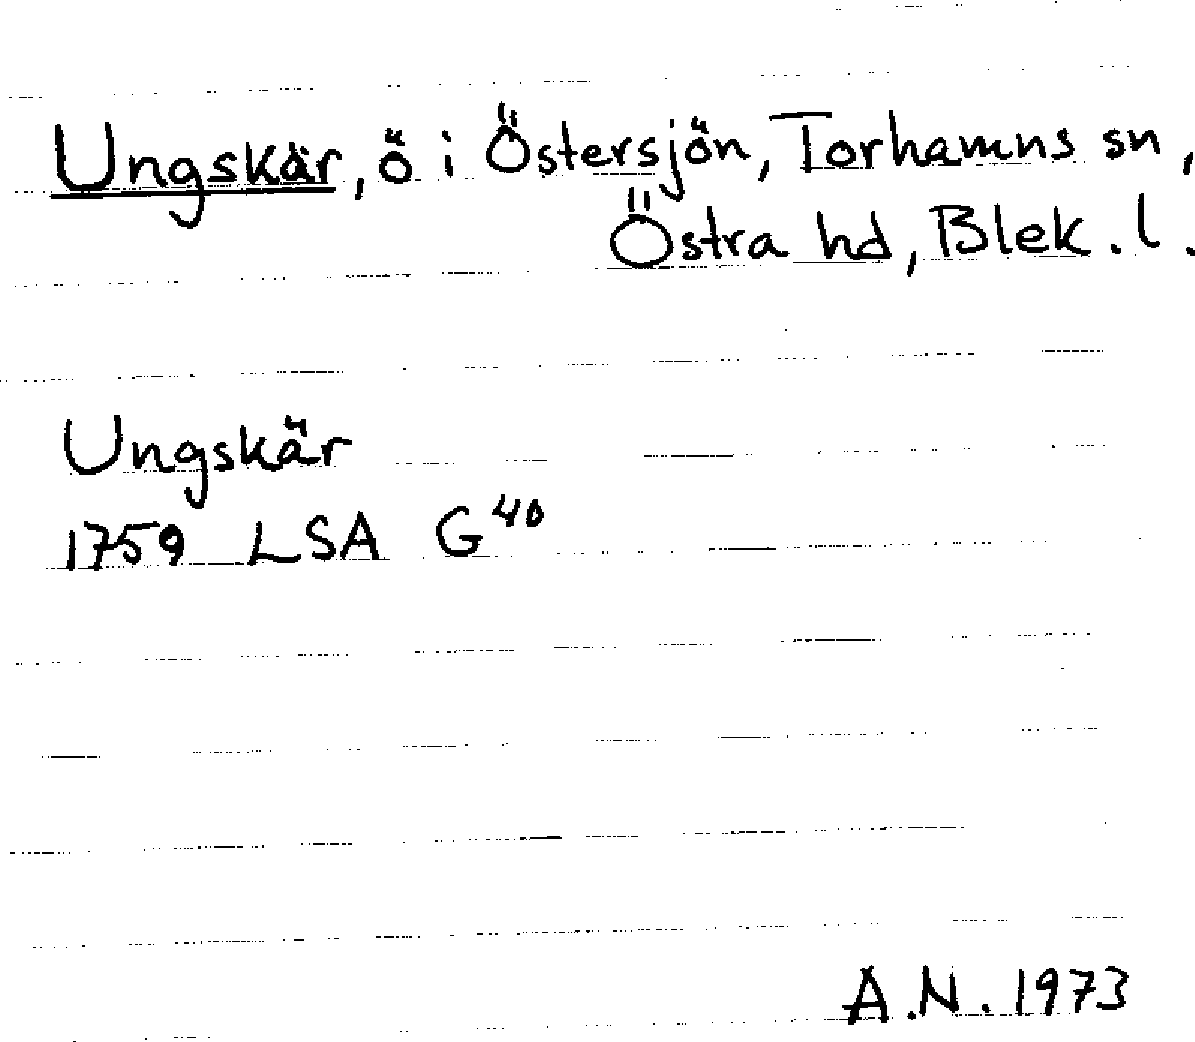 Ungskär, ö i Östersjön, Torhamns sn,
Östra hd, Blek. l.
Ungskär
1759 LSA G 40
A.N. 1973